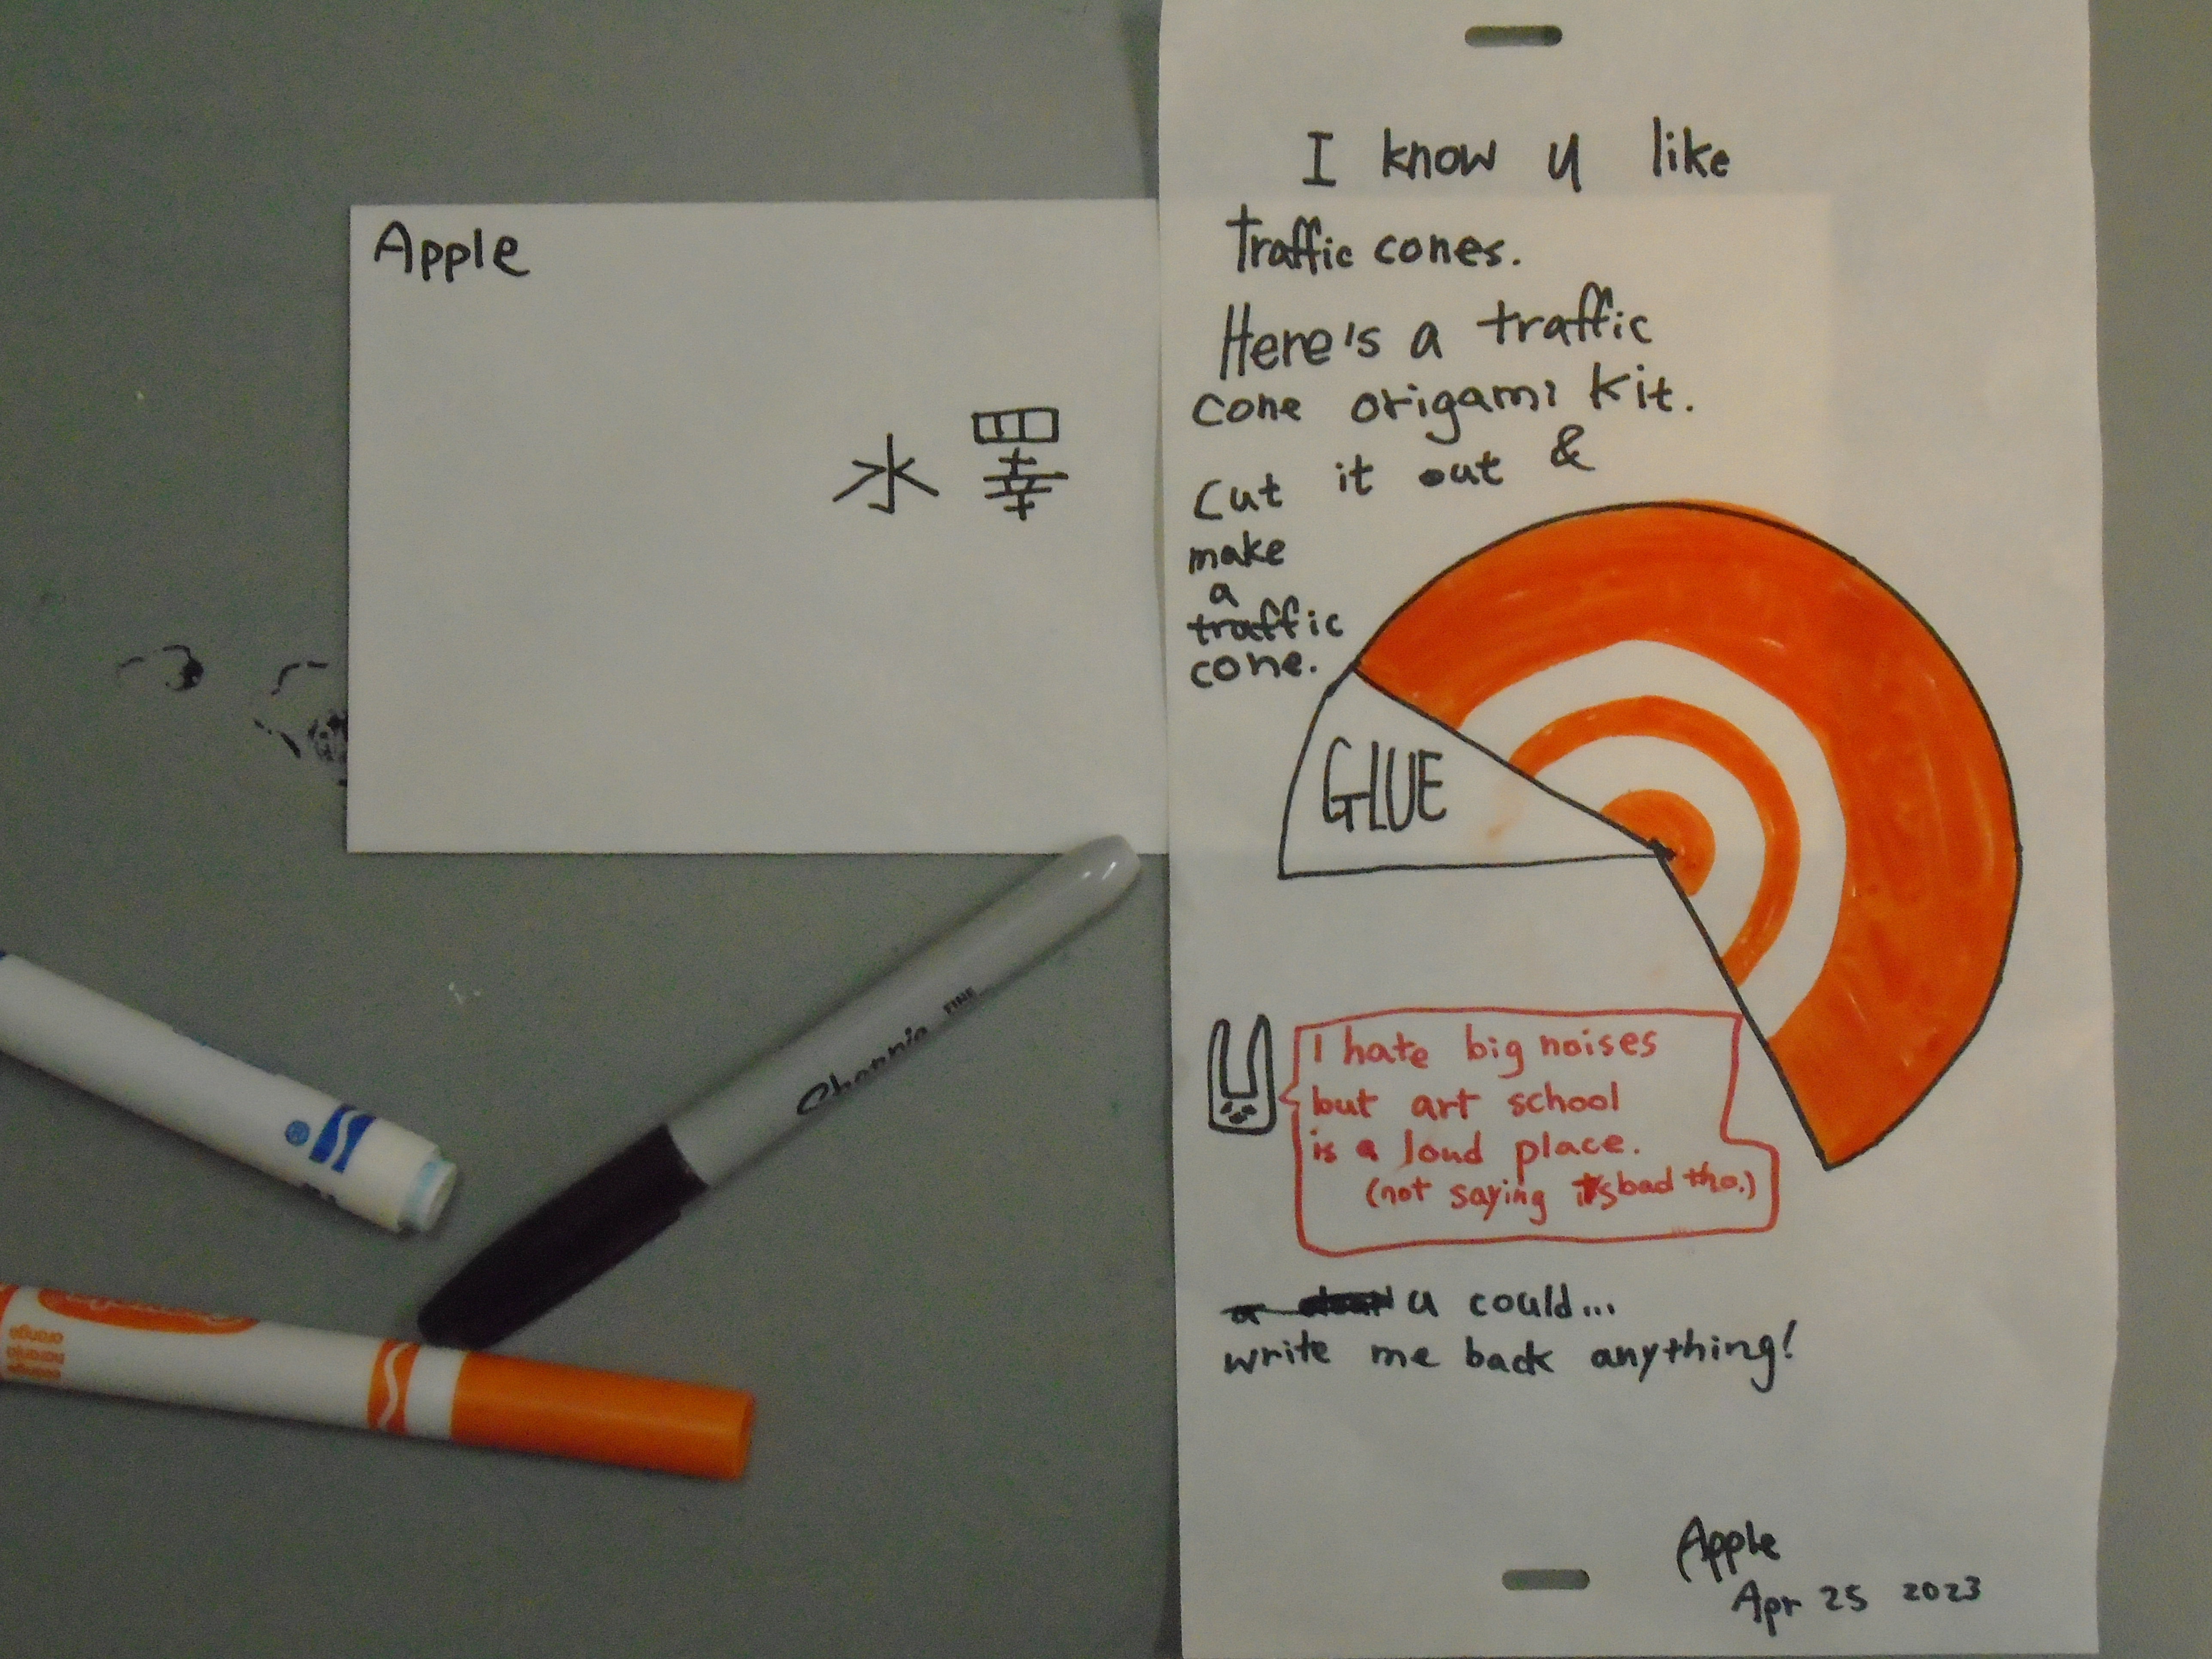 Apple
水 睪
I know u like
traffic cones.
Here's a traffic
cone origami kit.
cut it out &
make
a
traffic
cone.
GLUE
I hate big noises
but art school
is a loud place.
(not saying itsbad tho.)
u could...
write me back anything!
Apple
Apr 25 2023
Sharpie FINE
orange
naranja